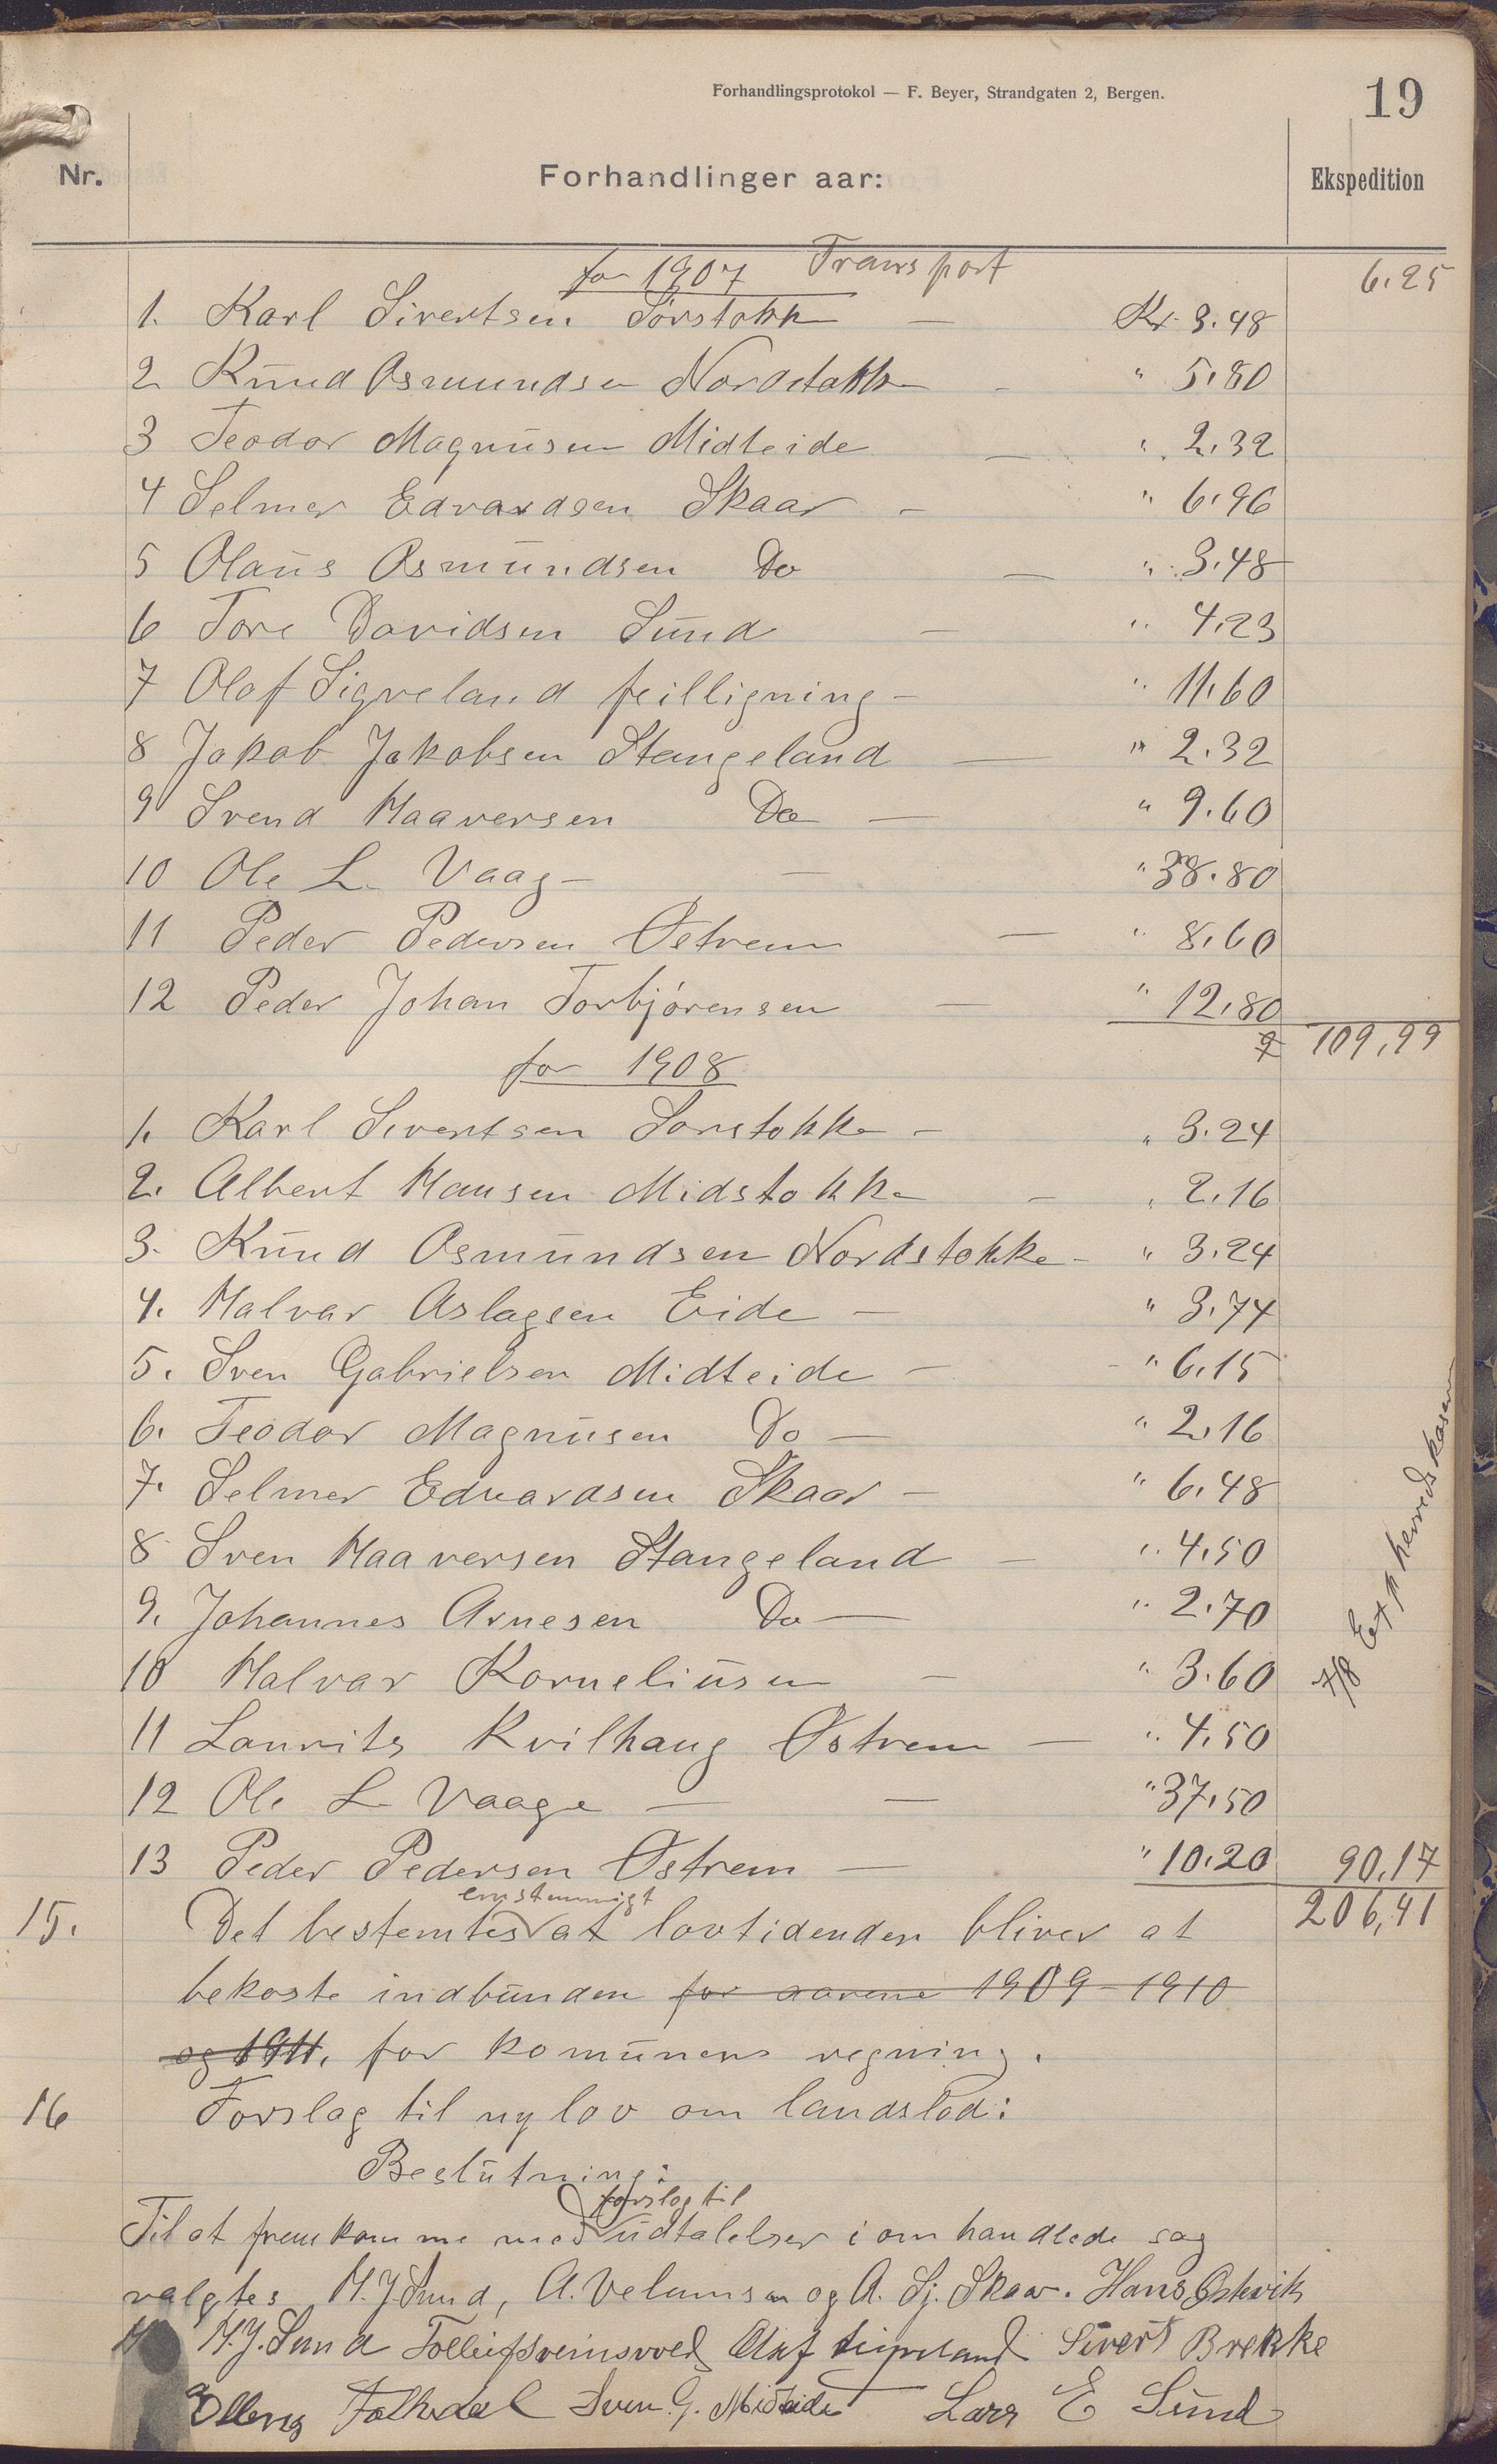 Forhandlingsprotokol — F. Beyer, Strandgaten 2, Bergen.
19
Nr. Forhandlinger aar: Ekspedition
for 1907 Transport 6.25
1. Karl Sivertsen Sørstokk — Kr 3.48
2 Knud Osmundsen Nordstokke - " 5.80
3 Teodor Magnusen Midteide — " 2.32
4 Selmer Edvardsen Skaar - " 6.96
5 Olaus Osmundsen Do — " 3.48
6 Tore Davidsen Sund — " 4.23
7 Olaf Sigveland feilligning - " 11.60
8 Jakob Jakobsen Stangeland — " 2.32
9 Svend Haaversen Do — " 9.60
10 Ole L. Vaag - — " 38.80
11 Peder Pedersen Østrem — " 8.60
12 Peder Johan Torbjørensen — " 12.80
109,99
for 1908
1. Karl Sivertsen Sørstokke - " 3.24
2. Albert Hansen Midstokke - " 2.16
3. Knud Osmundsen Nordstokke - " 3.24
4. Halvar Aslagsen Eide - " 3.74
5. Sven Gabrielsen Midteide - " 6.15
6. Teodor Magnusen Do — " 2.16
7. Selmer Edvardsen Skaar - " 6.48
8 Sven Haaversen Stangeland — " 4.50
9. Johannes Arnesen Do — " 2.70
10 Halvar Korneliusen - " 3.60
11 Laurits Kvilhaug Østrem — " 4.50
12 Ole L Vaage — — " 37.50
13 Peder Pedersen Østrem — " 10.20 90.17
206,41
herredskasern
15. Det bestemtes enstemmigt at lovtidenden bliver at
bekoste indbunden for aarene 1909-1910
og 1911. for komunens regning.
16 Forslag til ny lov om landslod:
Beslutning:
Til at fremkomme med forslag til udtalelser i omhandlede sag
valgtes H.J. Sund, A. Velumsen og A. Sj. Skaar. Hans Østevik
H.J. Sund Tolleif Sveinsvold Olaf Sigveland Sivert Brekke
Falkedal Sven G. Midteide Lars E Sund